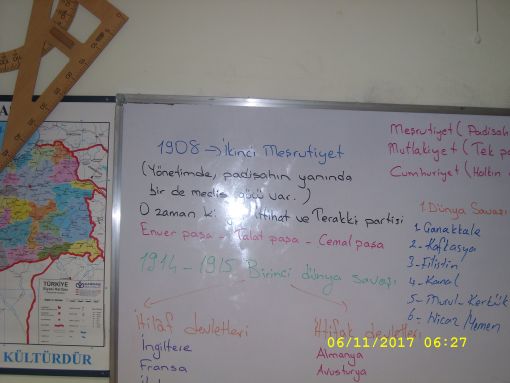 1908 → İkinci Meşrutiyet
(Yönetimde, padişahın yanında
bir de meclis gücü var.)
O zaman ki İttihat ve Terakki partisi
Enver paşa - Talat paşa - Cemal paşa
1914-1915 Birinci dünya savaşı
İtilaf devletleri
İngiltere
Fransa
İttifak devletleri
Almanya
Avusturya
Meşrutiyet (Padişah
Mutlakiyet (Tek p
Cumhuriyet (Halkın
1.Dünya Savaşı
1- Çanakkale
2- Kafkasya
3- Filistin
4- Kanal
5- Musul-Kerkük
6- Hicaz/Yemen
TÜRKİYE
KÜLTÜRDÜR
06/11/2017 06:27